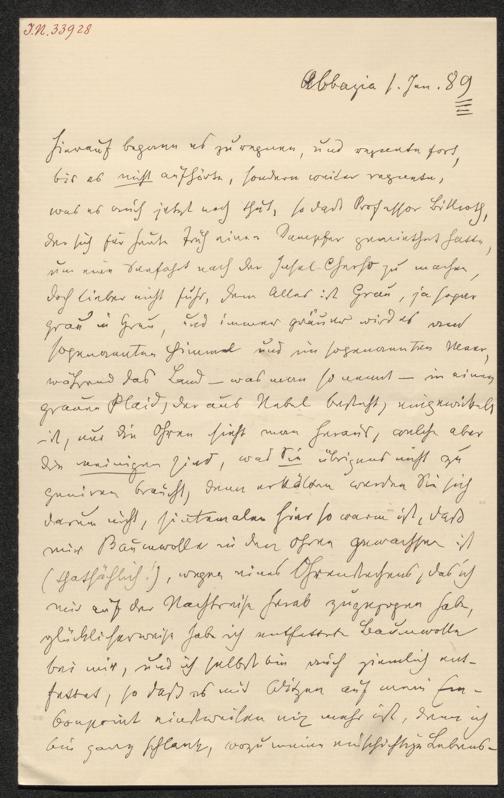 I.N. 33928
Abbazia 1. Jan. 89
Hierauf begann es zu regnen, und regnete fort,
bis es nicht aufhörte, sondern weiter regnete,
was es auch jetzt noch thut, so daß Professor Billroth,
der sich für heute Früh einen Dampfer gemiethet hatte,
um eine Seefahrt nach der Insel Cherso zu machen,
doch lieber nicht fuhr, denn Alles ist Grau, ja sogar
grau in Grau, und immer gräuer wird es am
sogenannten Himmel und im sogenannten Meer,
während das Land – was man so nennt – in einen
grauen Plaid, der aus Nebel besteht, eingewickelt
ist, nur die Ohren sieht man heraus, welche aber
die meinigen sind, was Sie übrigens nicht zu
geniren braucht, denn erkälten werden Sie sich
darum nicht, sintemalen hier so warm ist, daß
mir Baumwolle in den Ohren gewachsen ist
(thatsächlich!), wegen eines Ohrenstechens, das ich
mir auf der Nachtreise herab zugezogen habe,
glücklicherweise habe ich entfettete Baumwolle
bei mir, und ich selbst bin auch ziemlich ent-
fettet, so daß es mit Witzen auf mein Em-
bonpoint einstweilen nix mehr ist, denn ich
bin ganz schlank, wozu meine Lebens-